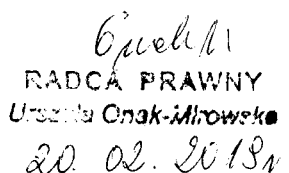 RADCA PRAWNY
Urszula Onak-Mirowska
20. 02. 2019r